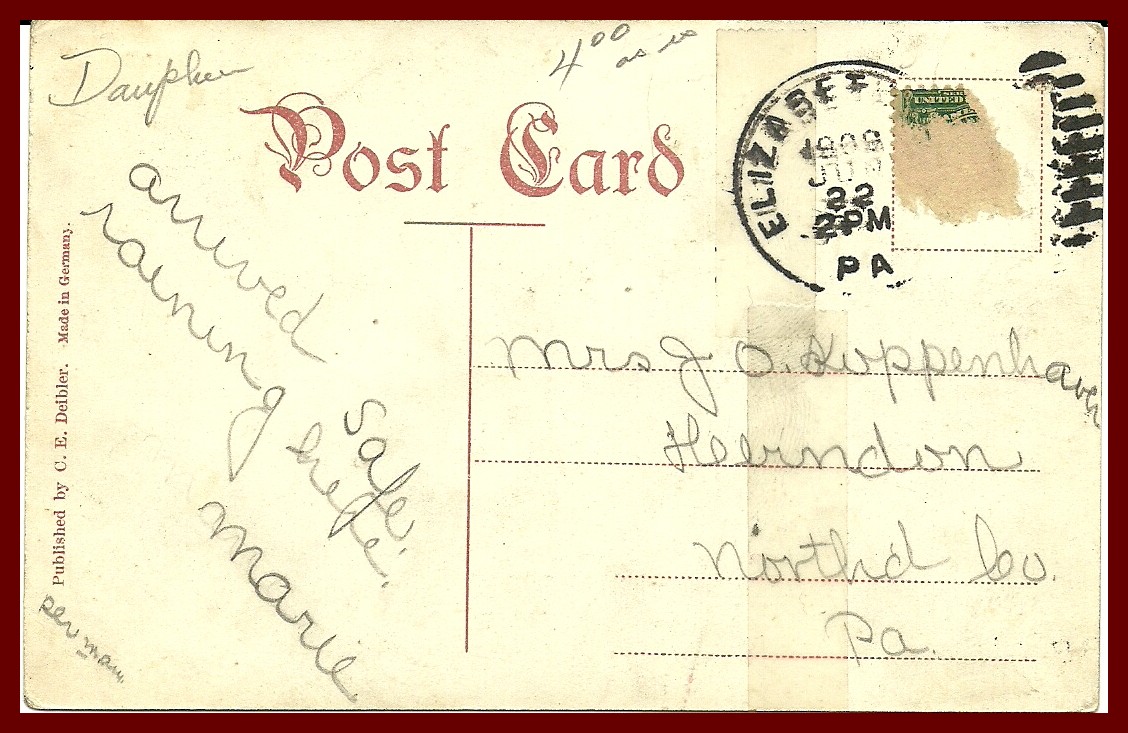 Dauphin
4 00 as is
Post Card
ELIZABET
1909
JUN
22
2PM
PA
UNITED
arrived safe.
raining here.
Marie
per mam.
Published by C. E. Deibler. Made in Germany.
Mrs J O. Koppenhaver
Heerndon
North'd Co.
Pa.